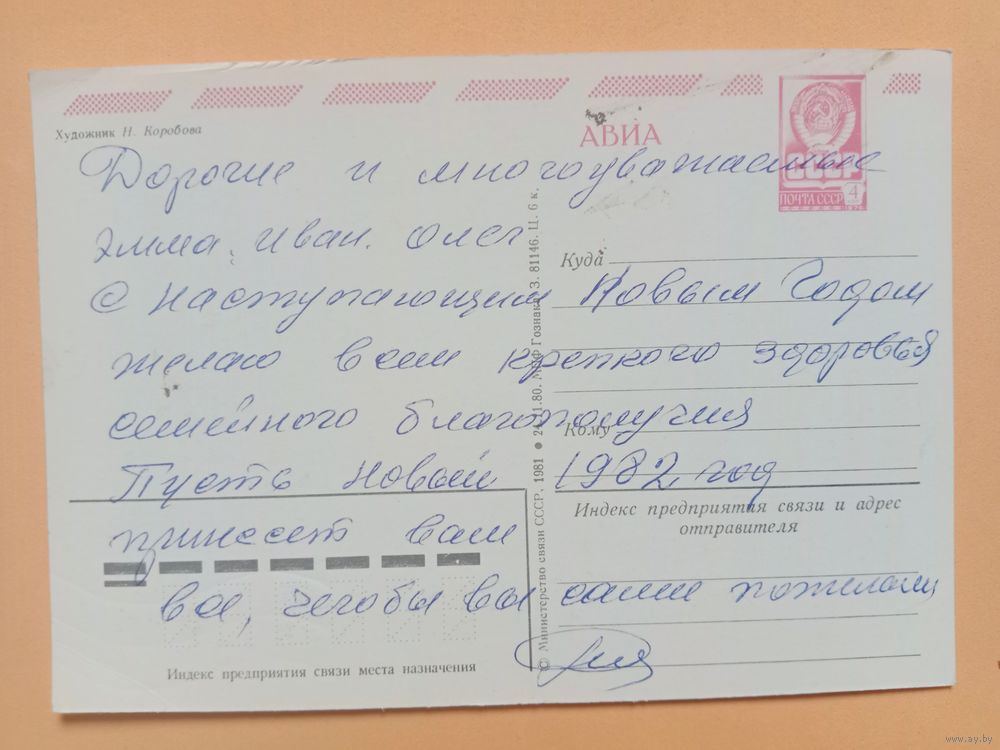 Художник Н. Коробова
АВИА
СССР
ПОЧТА СССР 4
Дорогие и многоуважаемые
Эмма, Иван, Олег
С наступающим Новым Годом
желаю всем крепкого здоровья
семейного благополучия
Пусть новый 1982 год
принесет вам
все, чего бы вы сами пожелали
Куда
Кому
Индекс предприятия связи и адрес
отправителя
Индекс предприятия связи места назначения
© Министерство связи СССР. 1981 • 80. Гознака. З. 81146. Ц. 6 к.
www.ay.by